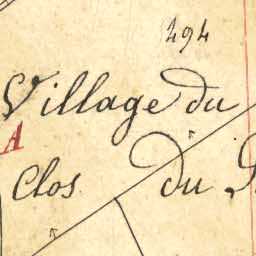 494
Village du
A
Clos du